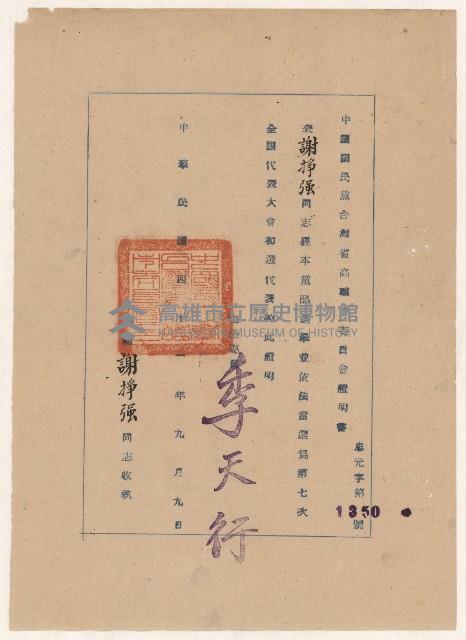 中國國民黨台灣省高雄 委員會證明書
忠元字第 號
1350
查謝掙强同志經本黨部選舉並依法當選為第七次
全國代表大會初選代表 此證明
季天行
中華民國四十一年九月九日
謝掙强同志收執
高雄市立歷史博物館
KAOHSIUNG MUSEUM OF HISTORY